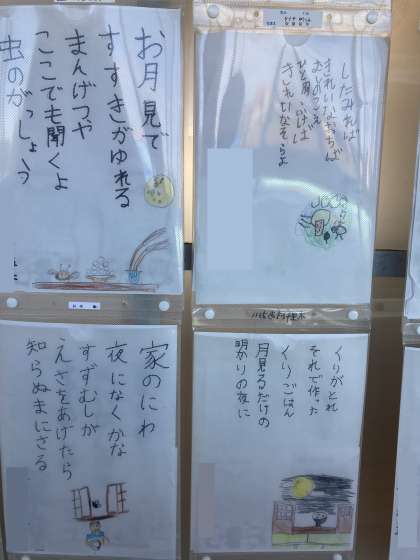 お月見で
すすきがゆれる
まんげつや
ここでも聞くよ
虫のがっしょう
したみれば
きれいなそらよ
家のにわ
夜になくかな
すずむしが
えさをあげたら
知らぬまにさる
くりがとれ
それで作った
くりごはん
月見るだけの
明かりの夜に